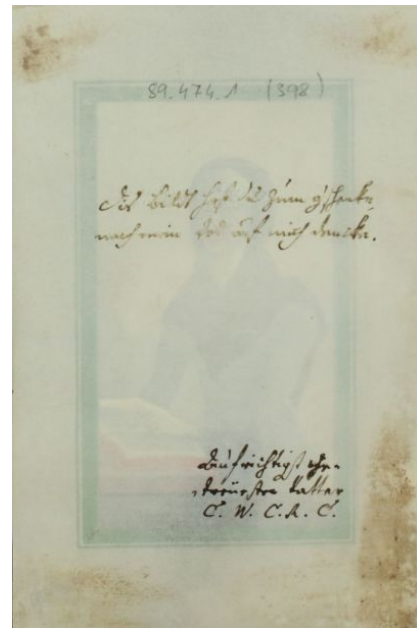 89.474.1 (398)
Dis bildt hast du zum g'schenke,
nach mein tod auf mich dencke.
Aufrichtigst
Vatter
C. W. C. R. C.